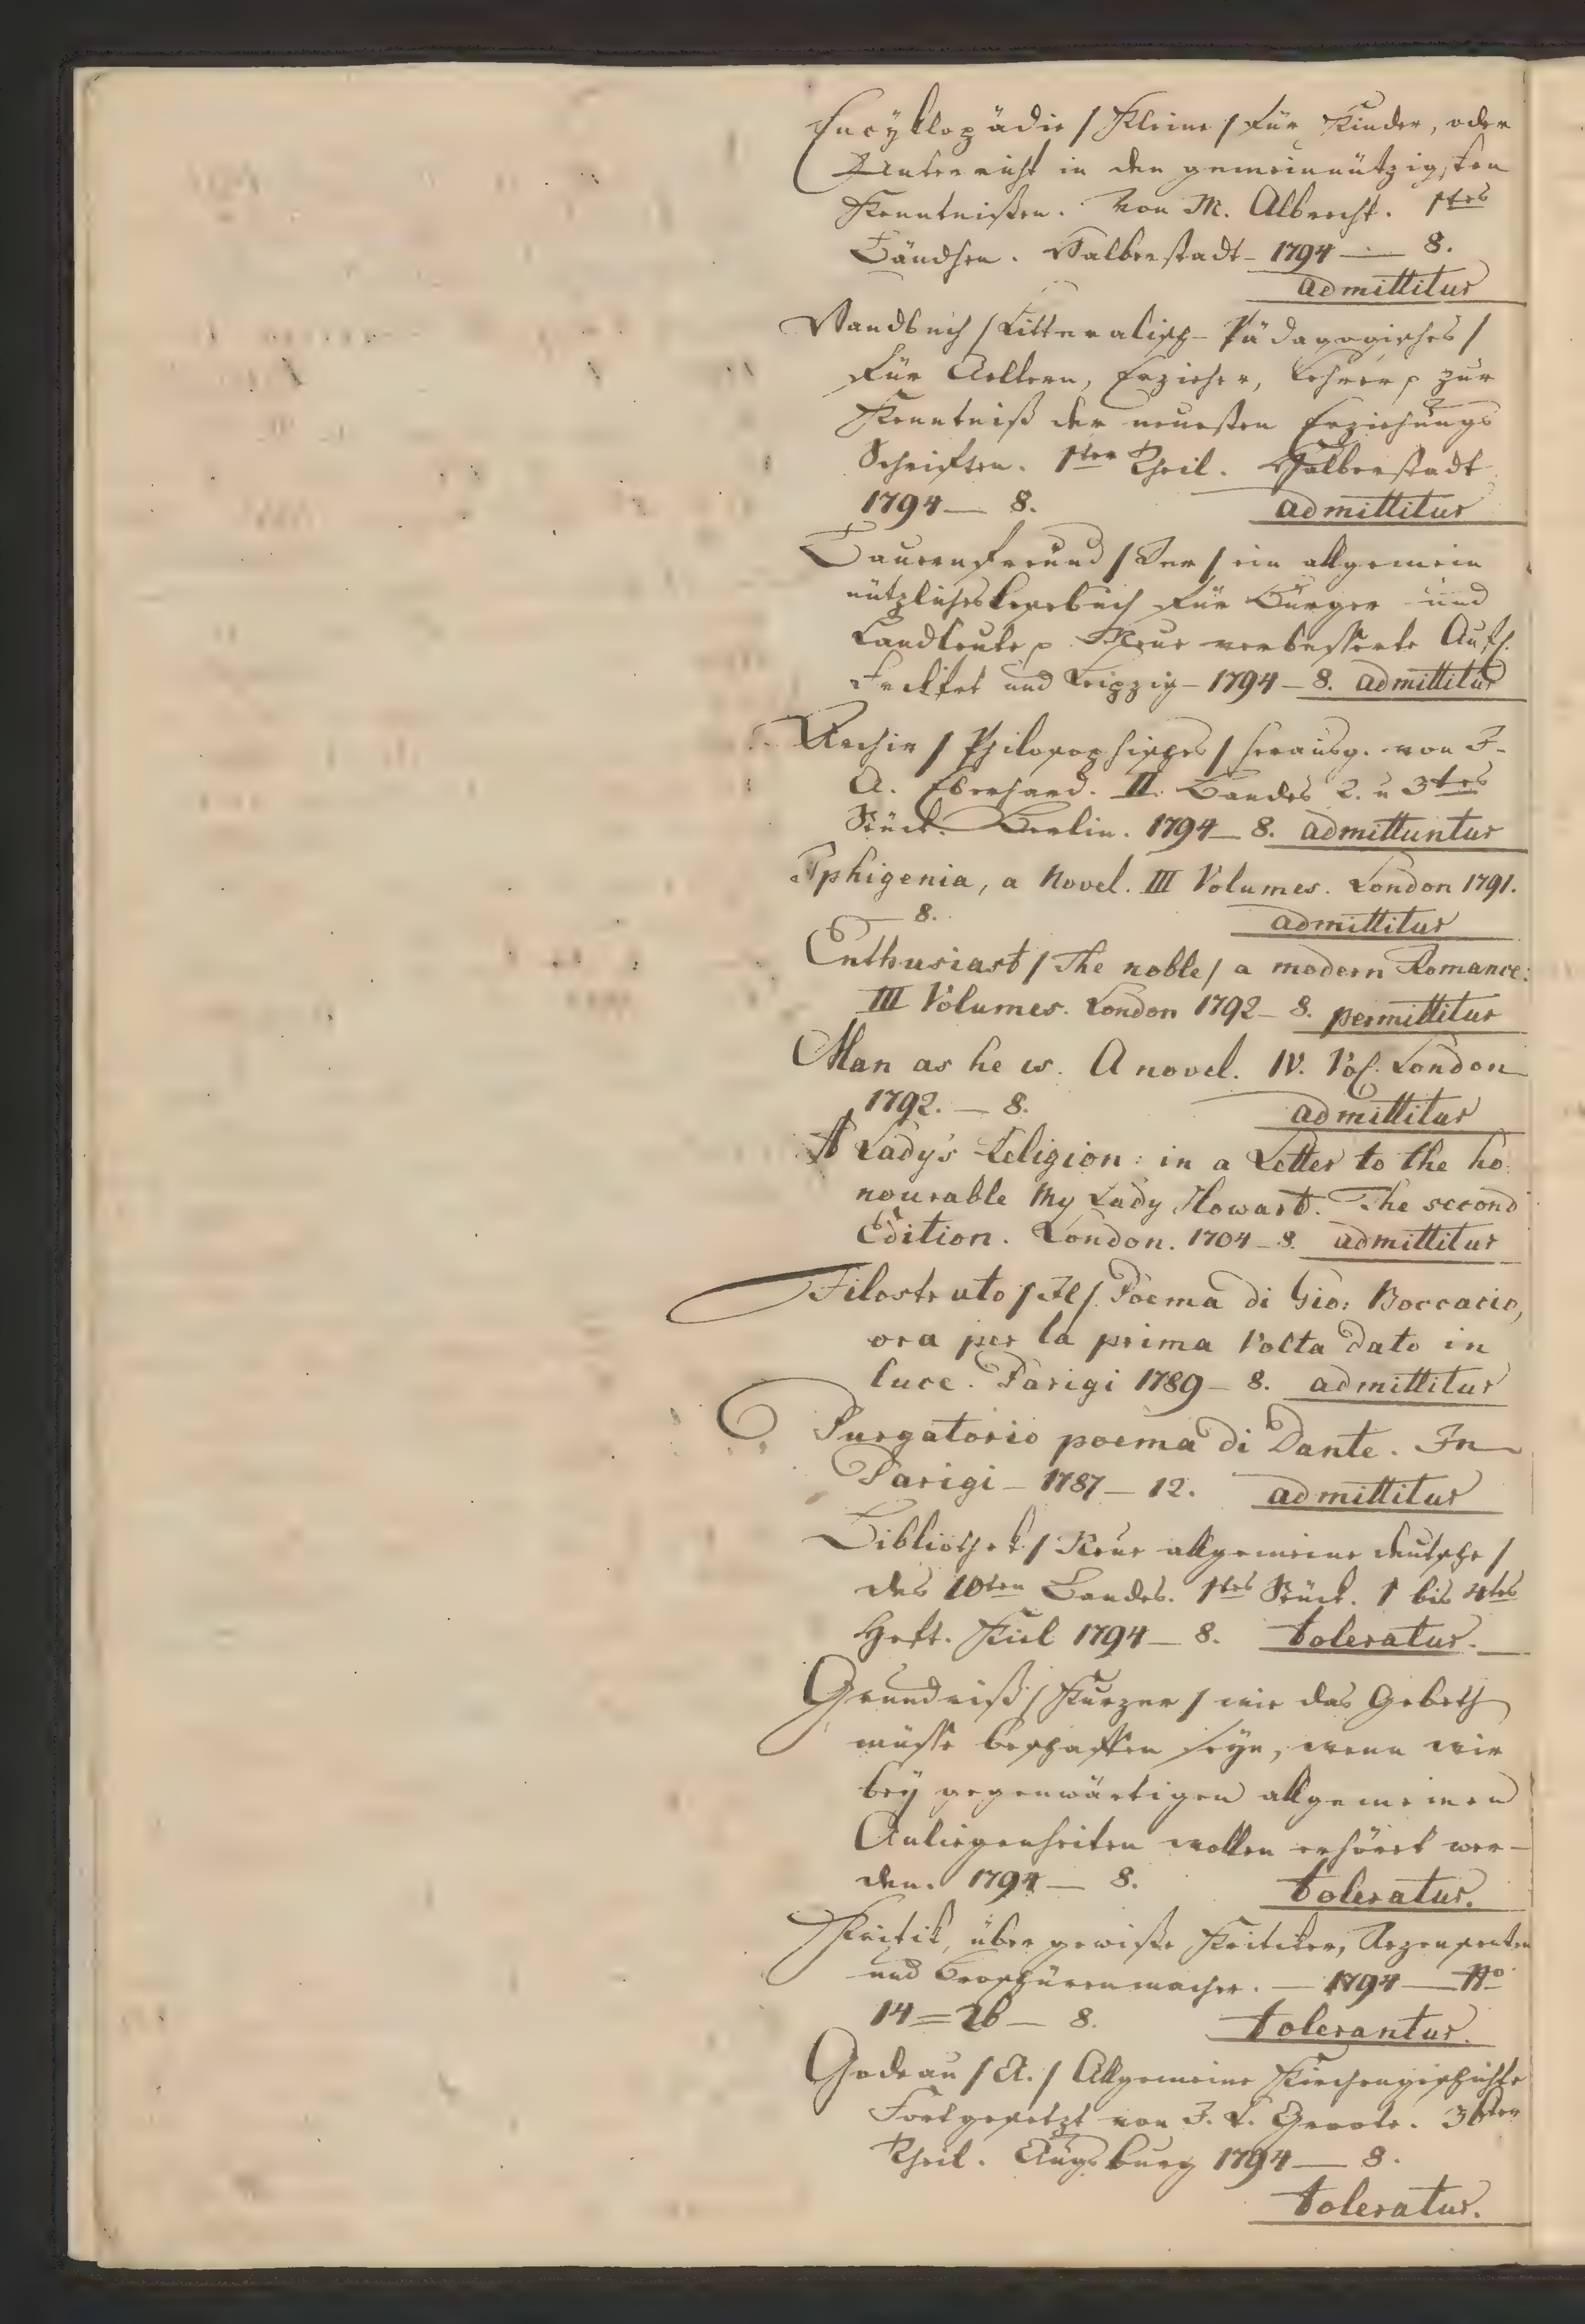 Encyklopädie / Kleine / für Kinder, oder
Unterricht in den gemeinnützigsten
Kenntnißen. Von M. Albrecht. 1tes
Bändchen. Halberstadt – 1794 — 8.
admittitur
Handbuch / Litteralisch-Pädagogisches /
für Aeltern, Erzieher, Lehrer, zur
Kenntniß der neuesten Erziehungs
Schriften. 1ter Theil. Halberstadt
1794 — 8. admittitur
Bauernfreund / Der / ein allgemein
nützliches Lesebuch für Bürger und
Landleute, Neue verbesserte Aufl.
und Leipzig – 1794 – 8. admittitur
Archiv / Philosophisches / herausg. von J.
A. Eberhard. II. Bandes 2. u 3tes
Stück. Berlin. 1794 – 8. admittuntur
Iphigenia, a Novel. III Volumes. London 1791.
8. admittitur
Enthusiast / The noble / a modern Romance:
III Volumes. London 1792 – 8. permittitur
Man as he is. A novel. IV. Vol. London
1792. — 8. admittitur
A Lady's Religion: in a Letter to the ho
nourable My Lady Howard. The second
Edition. London. 1704 – 8. admittitur
Filostrato / Il / Poema di Gio: Boccacio,
ora per la prima Volta dato in
luce. Parigi 1789 – 8. admittitur
Purgatorio poema di Dante. In
Parigi – 1787 – 12. admittitur
Bibliothek / Neue allgemeine deutsche /
des 10ten Bandes. 1tes Stück. 1 bis 4tes
Heft. Kiel 1794 – 8. toleratur.
Grundriß / Kurzer / wie das Gebeth
müsse beschaffen seyn, wenn wir
bey gegenwärtigen allgemeinen
Anliegenheiten wollen erhöret wer-
den. 1794 — 8. toleratur.
Kritik, über gewiße Kritiker, Rezensenten
und Broschürenmacher. — 1794 — No
14 = 26 — 8. tolerantur.
Godeau / A. / Allgemeine Kirchengeschichte
Fortgesetzt von J. L. Groote. 36ster
Theil. Augsburg 1794 — 8.
toleratur.